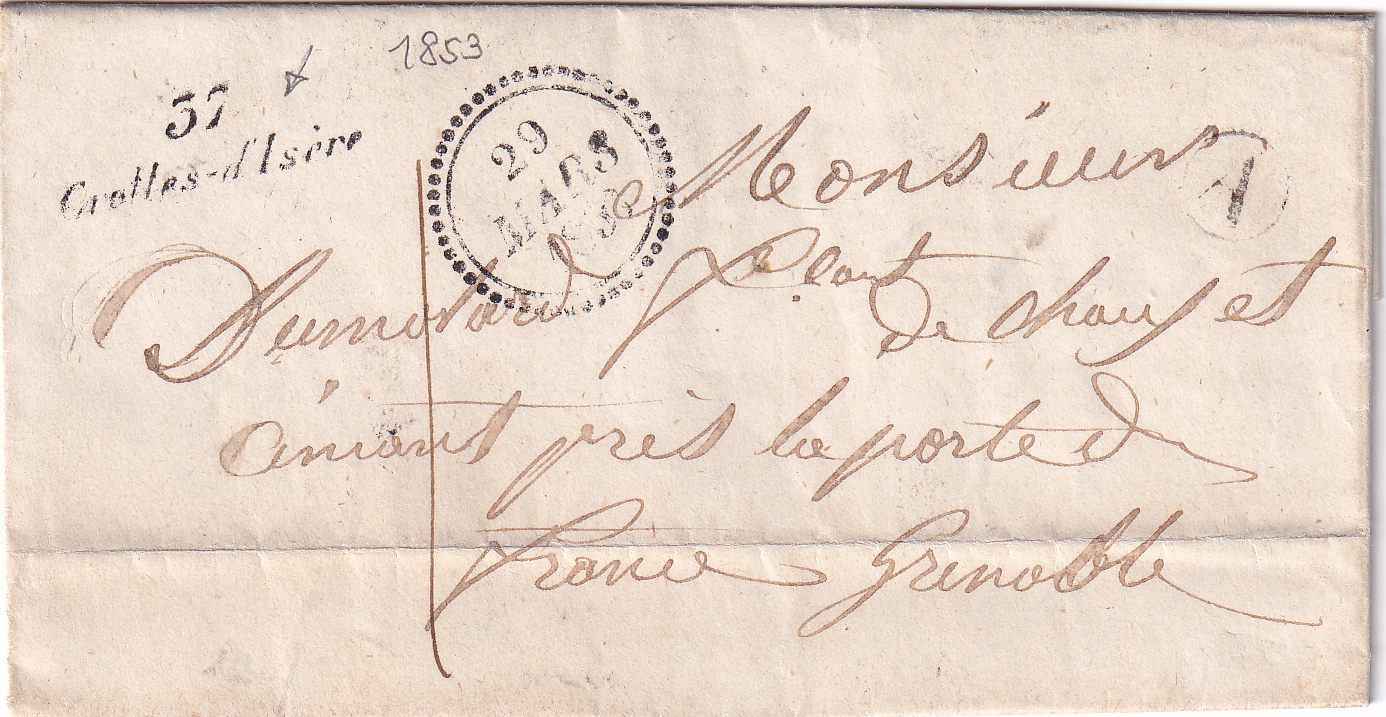 1853
37
Crolles-d'Isère
29
MARS
1853
A
Monsieur
Dumolard
de chaux et
ciment près la porte de
France Grenoble